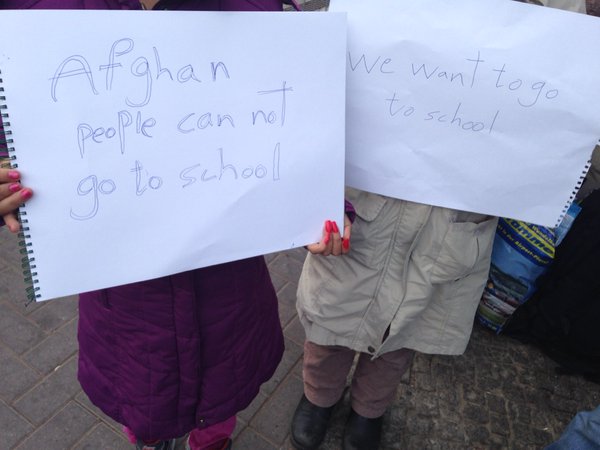 Afghan
people can not
go to school
We want to go
to school